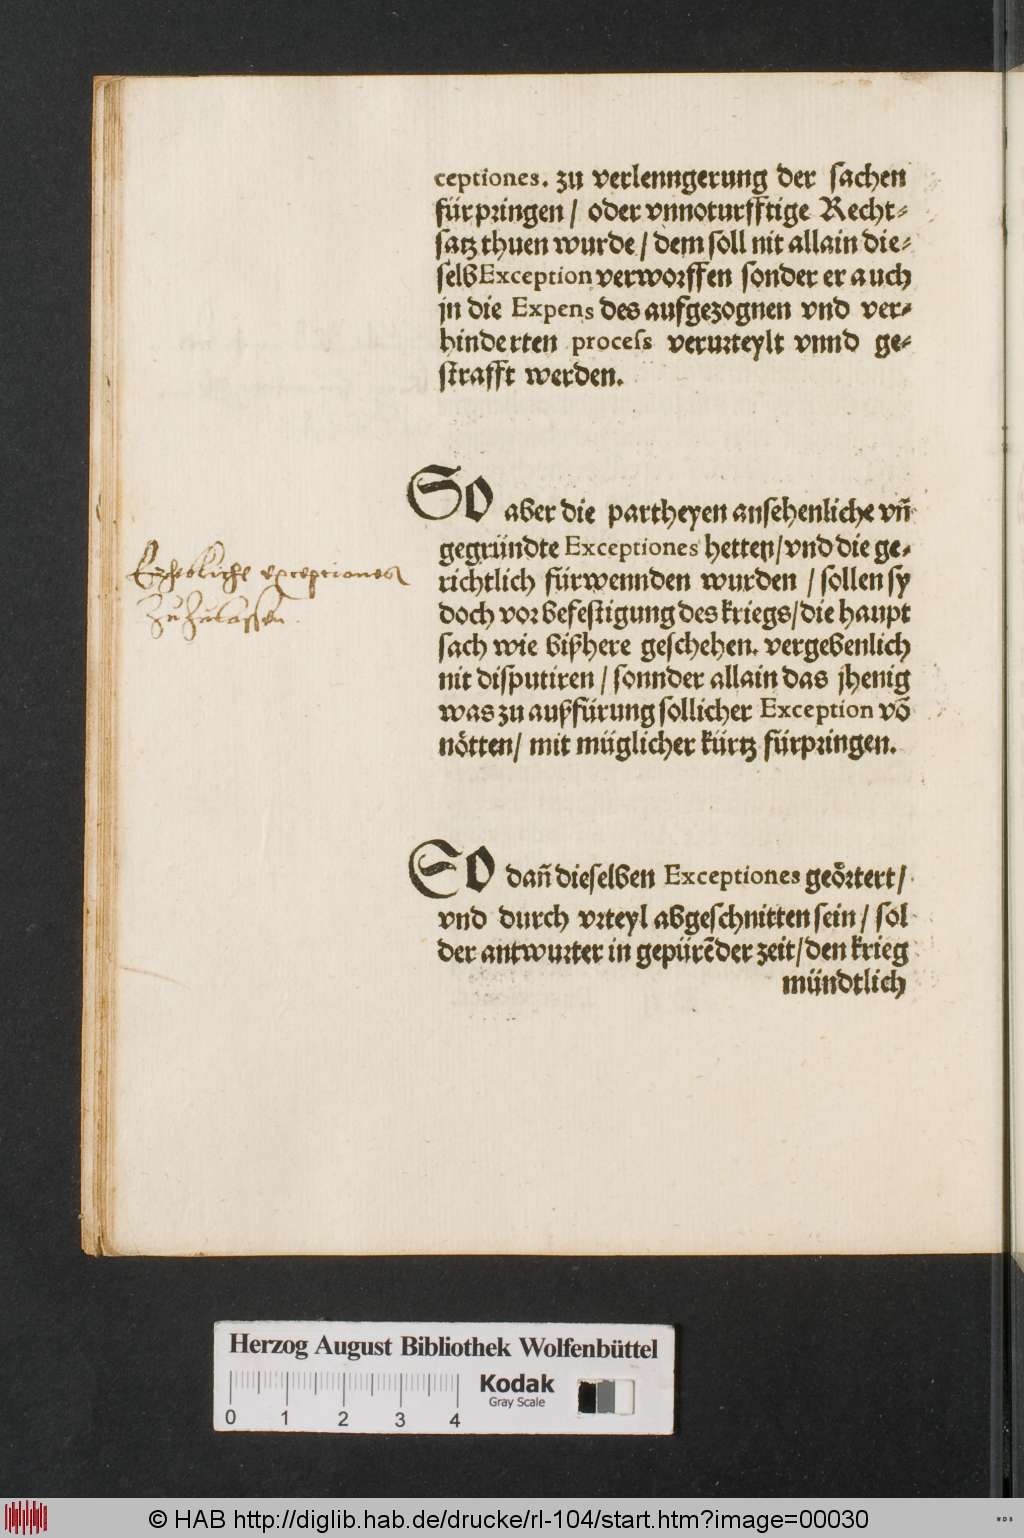 ceptiones. zu verlenngerung der sachen
fürpringen / oder vnnoturfftige Recht⸗
satz thuen wurde / dem soll nit allain die⸗
selb Exception verworffen sonder er auch
jn die Expens des aufgezognen vnd ver⸗
hinderten process verurteylt vnnd ge⸗
strafft werden.
SO aber die partheyen ansehenliche vñ
gegründte Exceptiones hetten / vnd die ge⸗
richtlich fürwennden wurden / sollen sy
doch vor befestigung des kriegs / die haupt
sach wie bißhere geschehen. vergebenlich
nit disputiren / sonnder allain das jhenig
was zu außfürung sollicher Exception võ
nötten / mit müglicher kürtz fürpringen.
Erhebliche exceptiones
Zu Zulassen.
SO dañ dieselben Exceptiones geörtert /
vnd durch vrteyl abgeschnitten sein / sol
der antwurter in gepürẽder zeit / den krieg
mündtlich
Herzog August Bibliothek Wolfenbüttel
Kodak
Gray Scale
0 1 2 3 4
© HAB http://diglib.hab.de/drucke/rl-104/start.htm?image=00030